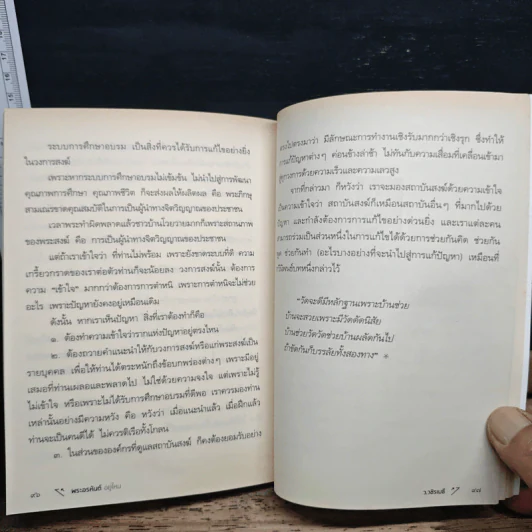 ระบบการศึกษาอบรม เป็นสิ่งที่ควรได้รับการแก้ไขอย่างยิ่ง
ในวงการสงฆ์
เพราะหากระบบการศึกษาอบรมไม่เข้มข้น ไม่นำไปสู่การพัฒนา
คุณภาพการศึกษา คุณภาพชีวิต ก็จะส่งผลให้ผลิตผล คือ พระภิกษุ
สามเณรขาดคุณสมบัติในการเป็นผู้นำทางจิตวิญญาณของประชาชน
เวลาพระทำผิดพลาดแล้วชาวบ้านโวยวายมากก็เพราะสถานภาพ
ของพระสงฆ์ คือ การเป็นผู้นำทางจิตวิญญาณของประชาชน
แต่ถ้าเราเข้าใจว่า ที่ท่านไม่พร้อม เพราะยังขาดระบบที่ดี ความ
เกรี้ยวกราดของเราต่อตัวท่านก็จะน้อยลง วงการสงฆ์นั้น ต้องการ
ความ "เข้าใจ" มากกว่าต้องการการตำหนิ เพราะการตำหนิจะไม่ช่วย
อะไร เพราะปัญหายังคงอยู่เหมือนเดิม
ดังนั้น หากเราเห็นปัญหา สิ่งที่เราต้องทำก็คือ
๑. ต้องทำความเข้าใจว่ารากแห่งปัญหาอยู่ตรงไหน
๒. ต้องถวายคำแนะนำให้กับวงการสงฆ์หรือแก่พระสงฆ์เป็น
รายบุคคล เพื่อให้ท่านได้ตระหนักถึงข้อบกพร่องต่างๆ เพราะมีอยู่
เสมอที่ท่านเผลอและพลาดไป ไม่ใช่ด้วยความจงใจ แต่เพราะไม่รู้
ไม่เข้าใจ หรือเพราะไม่ได้รับการศึกษาอบรมที่ดีพอ เราควรมองท่าน
เหล่านั้นอย่างมีความหวัง คือ หวังว่า เมื่อแนะนำแล้ว เมื่อฝึกแล้ว
ท่านจะเป็นคนดีได้ ไม่ควรตีเรือทั้งโกลน
๓. ในส่วนขององค์กรที่ดูแลสถาบันสงฆ์ ก็คงต้องยอมรับอย่าง
๙๖
พระอรหันต์ อยู่ไหน
ตรงไปตรงมาว่า มีลักษณะการทำงานเชิงรับมากกว่าเชิงรุก ซึ่งทำให้
การแก้ปัญหาต่างๆ ค่อนข้างล่าช้า ไม่ทันกับความเสื่อมที่เคลื่อนเข้ามา
สู่วงการด้วยความเร็วและความเลวสูง
จากที่กล่าวมา ก็หวังว่า เราจะมองสถาบันสงฆ์ด้วยความเข้าใจ
เป็นความเข้าใจว่า สถาบันสงฆ์ก็เหมือนสถาบันอื่นๆ ที่มากไปด้วย
ปัญหา และกำลังต้องการการแก้ไขอย่างด่วนยิ่ง และเราแต่ละคน
สามารถร่วมเป็นส่วนหนึ่งในการแก้ไขได้ด้วยการช่วยกันคิด ช่วยกัน
ช่วยกันทำ (อะไรบางอย่างที่จะนำไปสู่การแก้ปัญหา) เหมือนที่
บทหนึ่งกล่าวไว้
"วัดจะดีมีหลักฐานเพราะบ้านช่วย
บ้านจะสวยเพราะมีวัดดัดนิสัย
บ้านช่วยวัดวัดช่วยบ้านผลัดกันไป
ถ้าขัดกันก็บรรลัยทั้งสองทาง"
ว.วชิรเมธี
๙๗